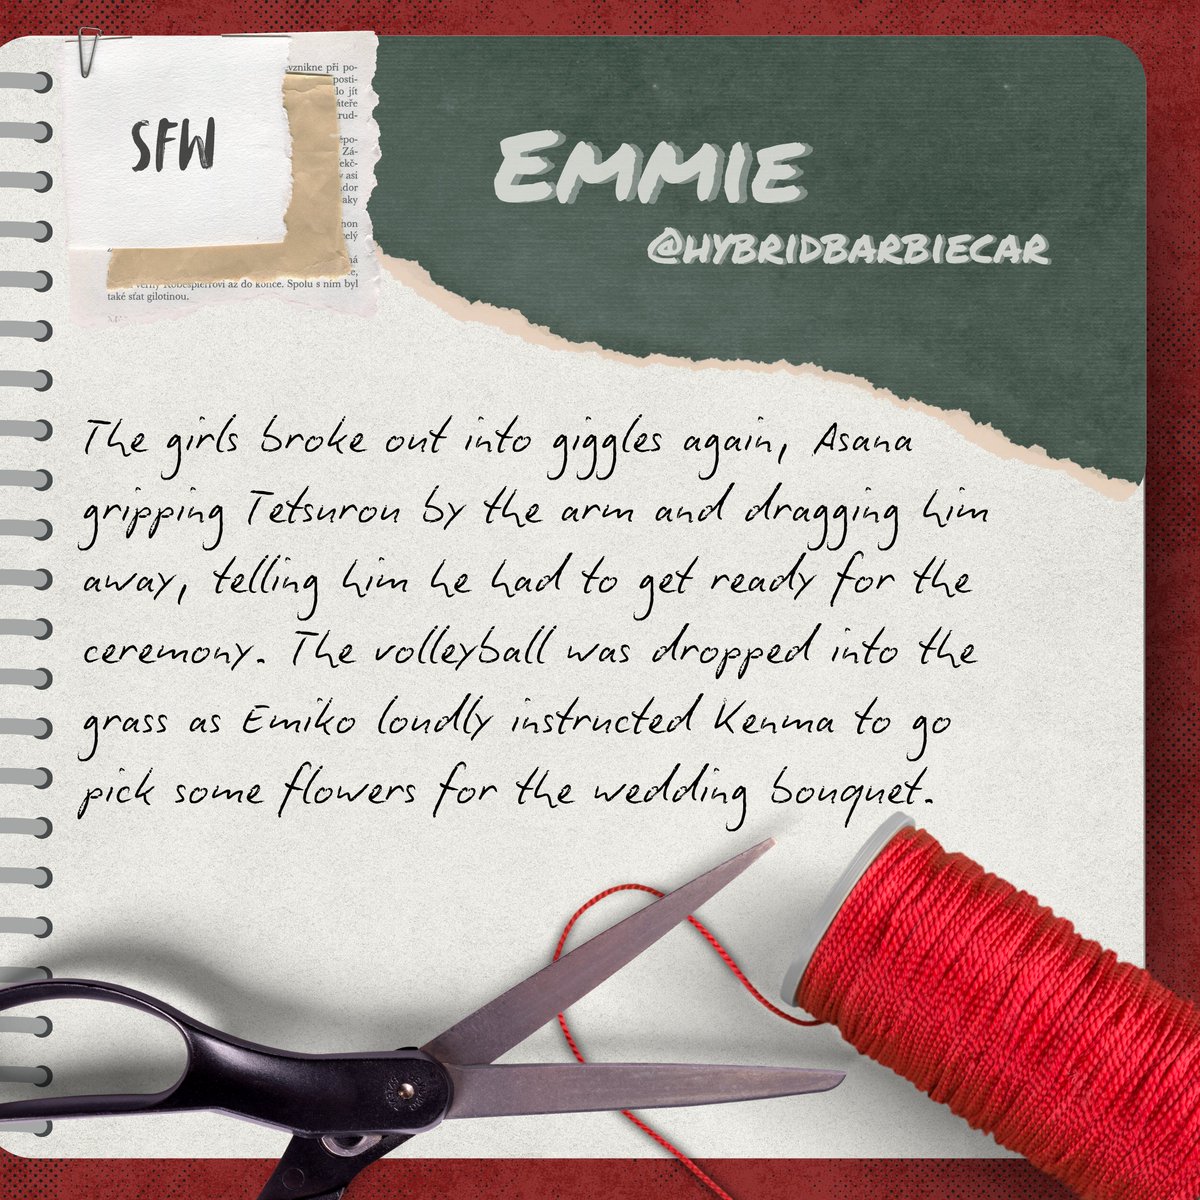 SFW
vznikne při po-
posti-
lo jít
áteře
rud-
épo-
Zá-
ekč-
v asi
ador
aky
non
celý
ná
verný Robespierrovi až do konce. Spolu s ním byl
také sťat gilotinou.
EMMIE
@HYBRIDBARBIECAR
The girls broke out into giggles again, Asana
gripping Tetsurou by the arm and dragging him
away, telling him he had to get ready for the
ceremony. The volleyball was dropped into the
grass as Emiko loudly instructed Kenma to go
pick some flowers for the wedding bouquet.